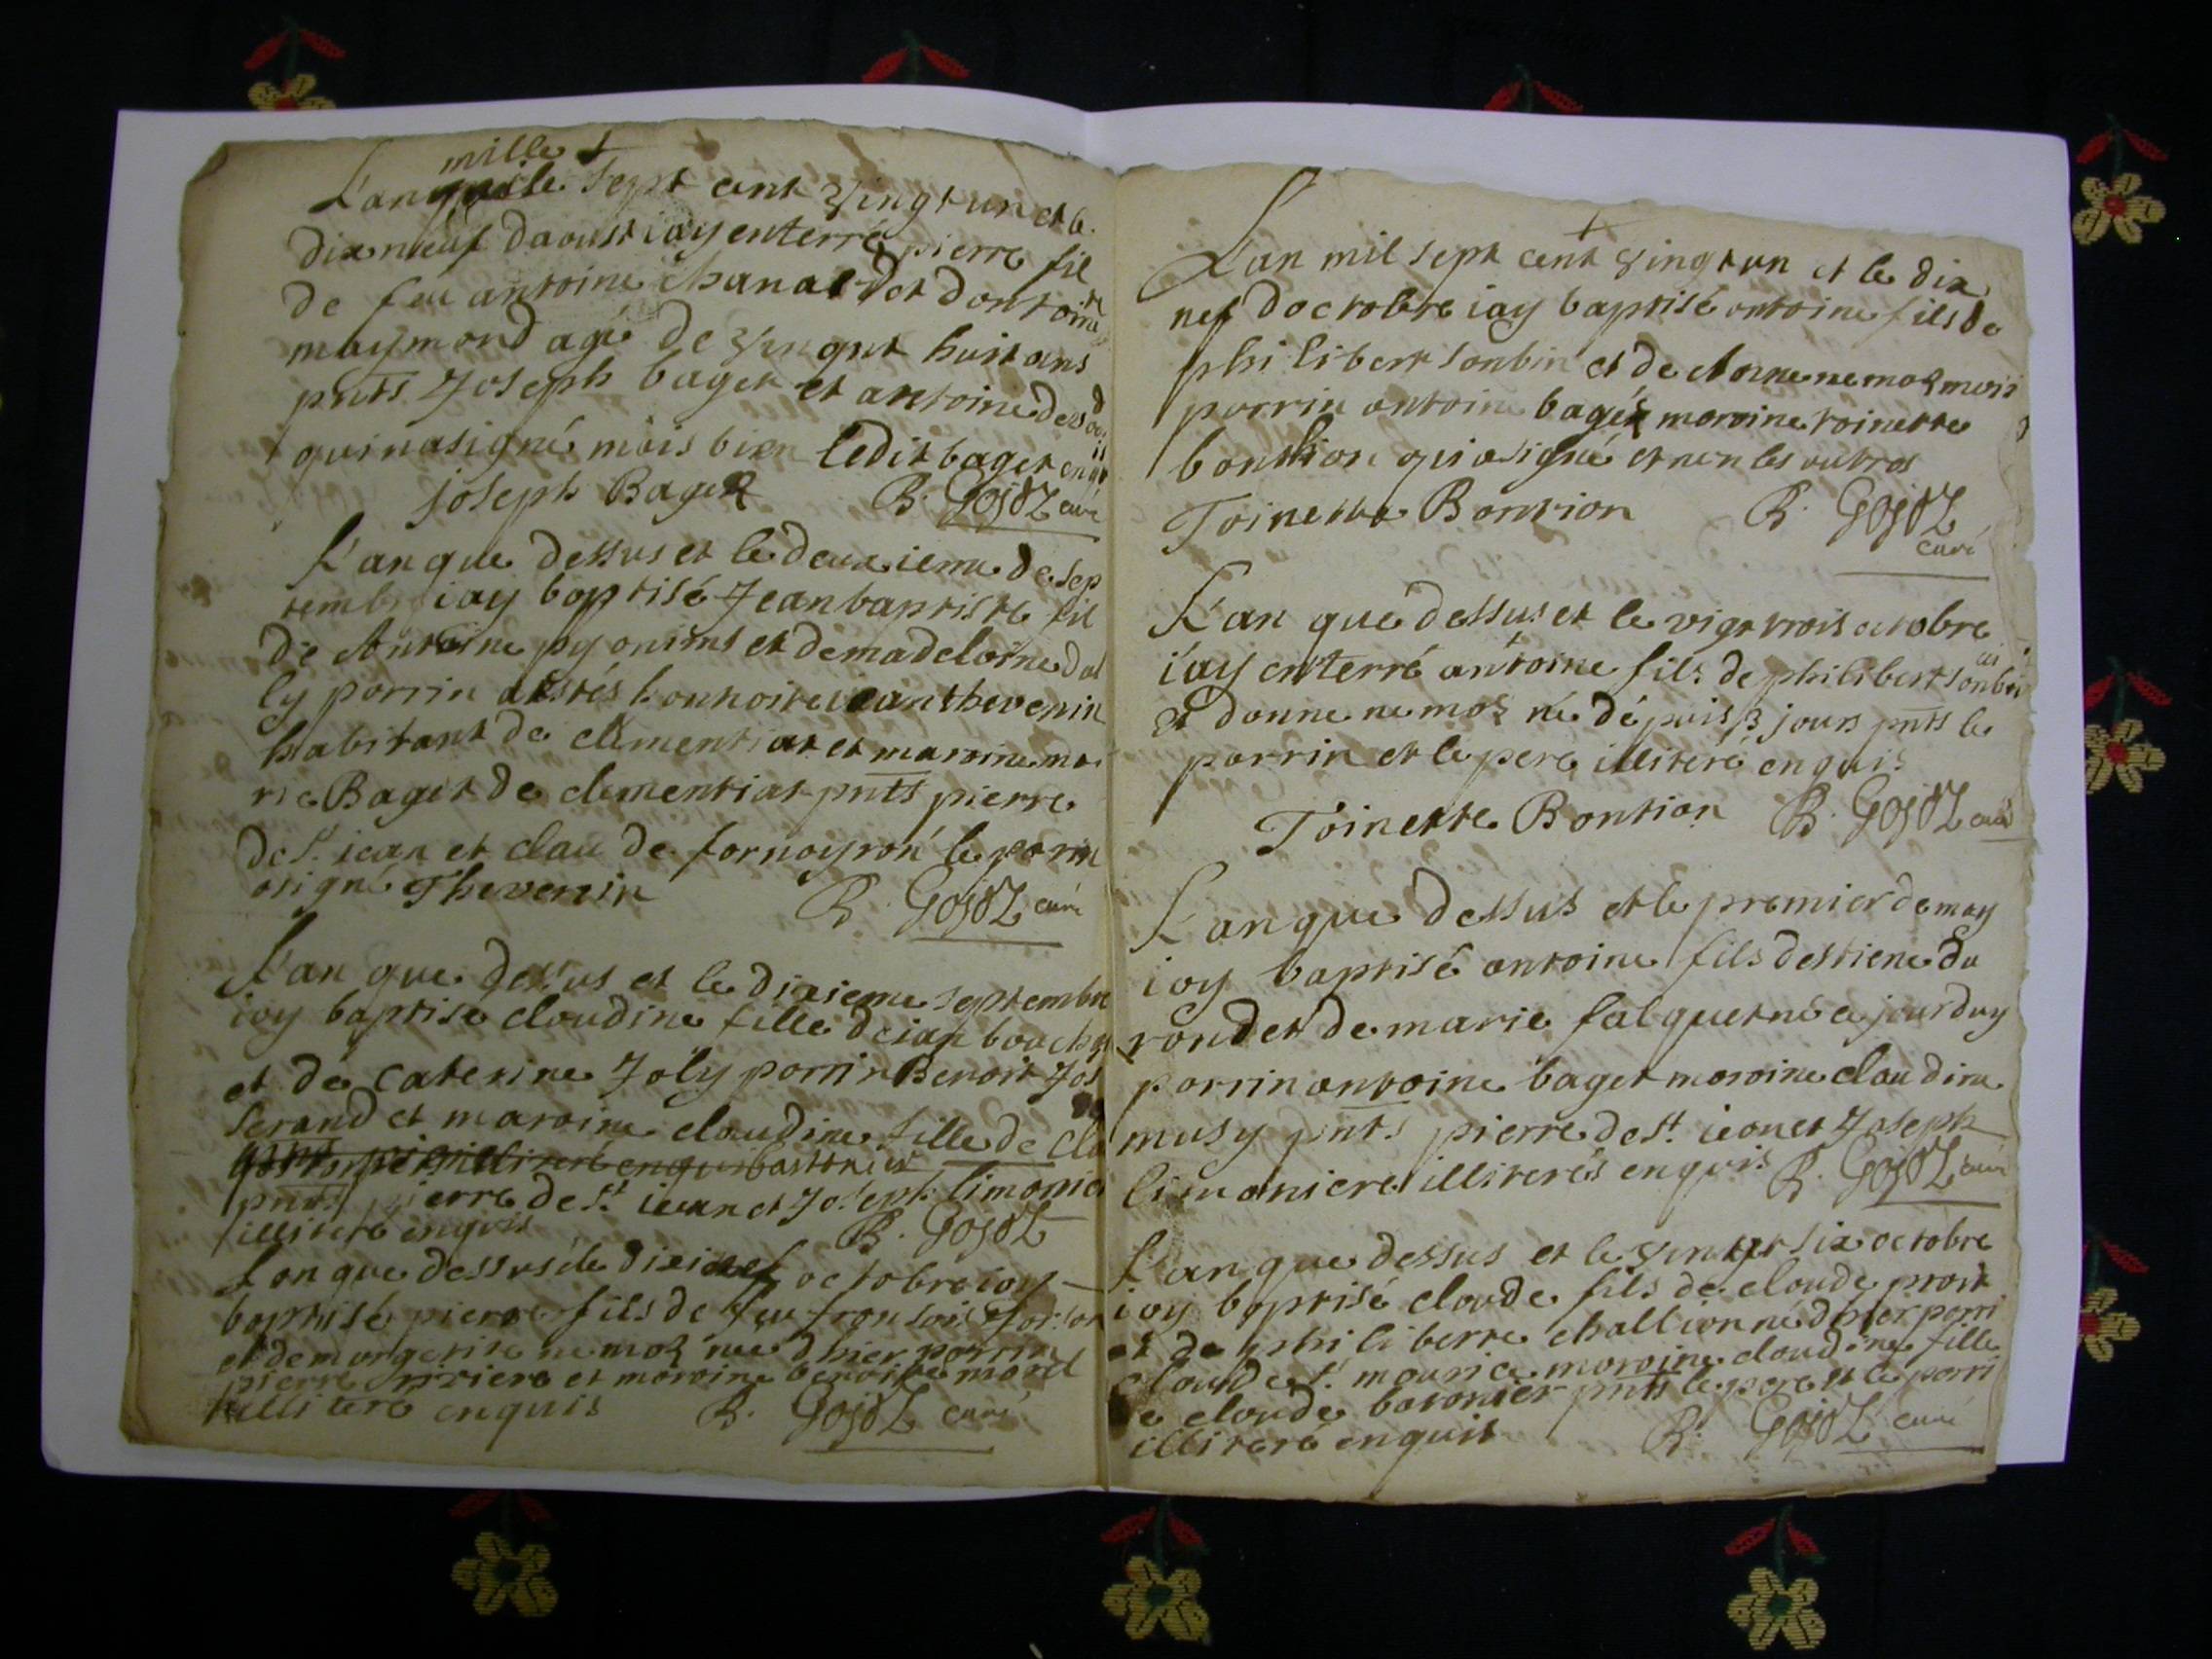 mille
L'an sept cent vingt un et le
dix neuf daoust iay enterré pierre fil
de feu antoine Chanal et dantoin
maymond agé de vingt huit ans
pnts Joseph baget et antoine
qui na signé mais bien ledit baget
Joseph Baget B. Gojoz curé
L'an que dessus et le deuxieme de sep
tembre iay baptisé Jean baptiste fil
de Antoine pyonins et de madeloine dal
ly parrin honnoite iean thevenin
habitant de clementiat et maroine ma
rie Baget de clementiat pnts pierre
de St. iean et clau de fornoyron le parin
asigné Thevenin B. Gojoz curé
L'an que dessus et le dixieme septembre
iay baptise claudine fille de ian
et de Caterine Joly parrin Benoit Jos
serand et maroine claudine fille de cla
pnts pierre de St. iean et Joseph limonie
illiteré enquis B. Gojoz
L'an que dessus et le octobre iay
baptisé pierre fils de feu fransois
et de margerite nemoz née dhier parrin
pierre et maroine benoite morel
illiteré enquis B. Gojoz curé
L'an mil sept cent vingt un et le dix
nef doctobre iay baptisé antoine fils de
philibert sonbin et de nemoz
parrin antoine baget maroine toinette
bontion qui asigné et non les autres
Toinette Bontion B. Gojoz
curé
L'an que dessus et le vigt trois octobre
iay enterré antoine fils de philibert sonbin
et danne nemoz né dépuis 3 jours pnts le
parrin et le pere illiteré enquis
Toinette Bontion B. Gojoz curé
L'an que dessus et le premier de may
iay baptisé antoine fils destiene du
rond et de marie falquet né ajourduy
parrin antoine baget maroine claudine
musy pnts pierre de St. iean et Joseph
limoniere illiterés enquis B. Gojoz curé
L'an que dessus et le vintgt six octobre
iay baptisé claude fils de claude prost
et de philiberte challion né dhier parri
claude St. maurice maroine claudine fille
de claude baronier pnts le pere et le parri
illiteré enquis B. Gojoz curé